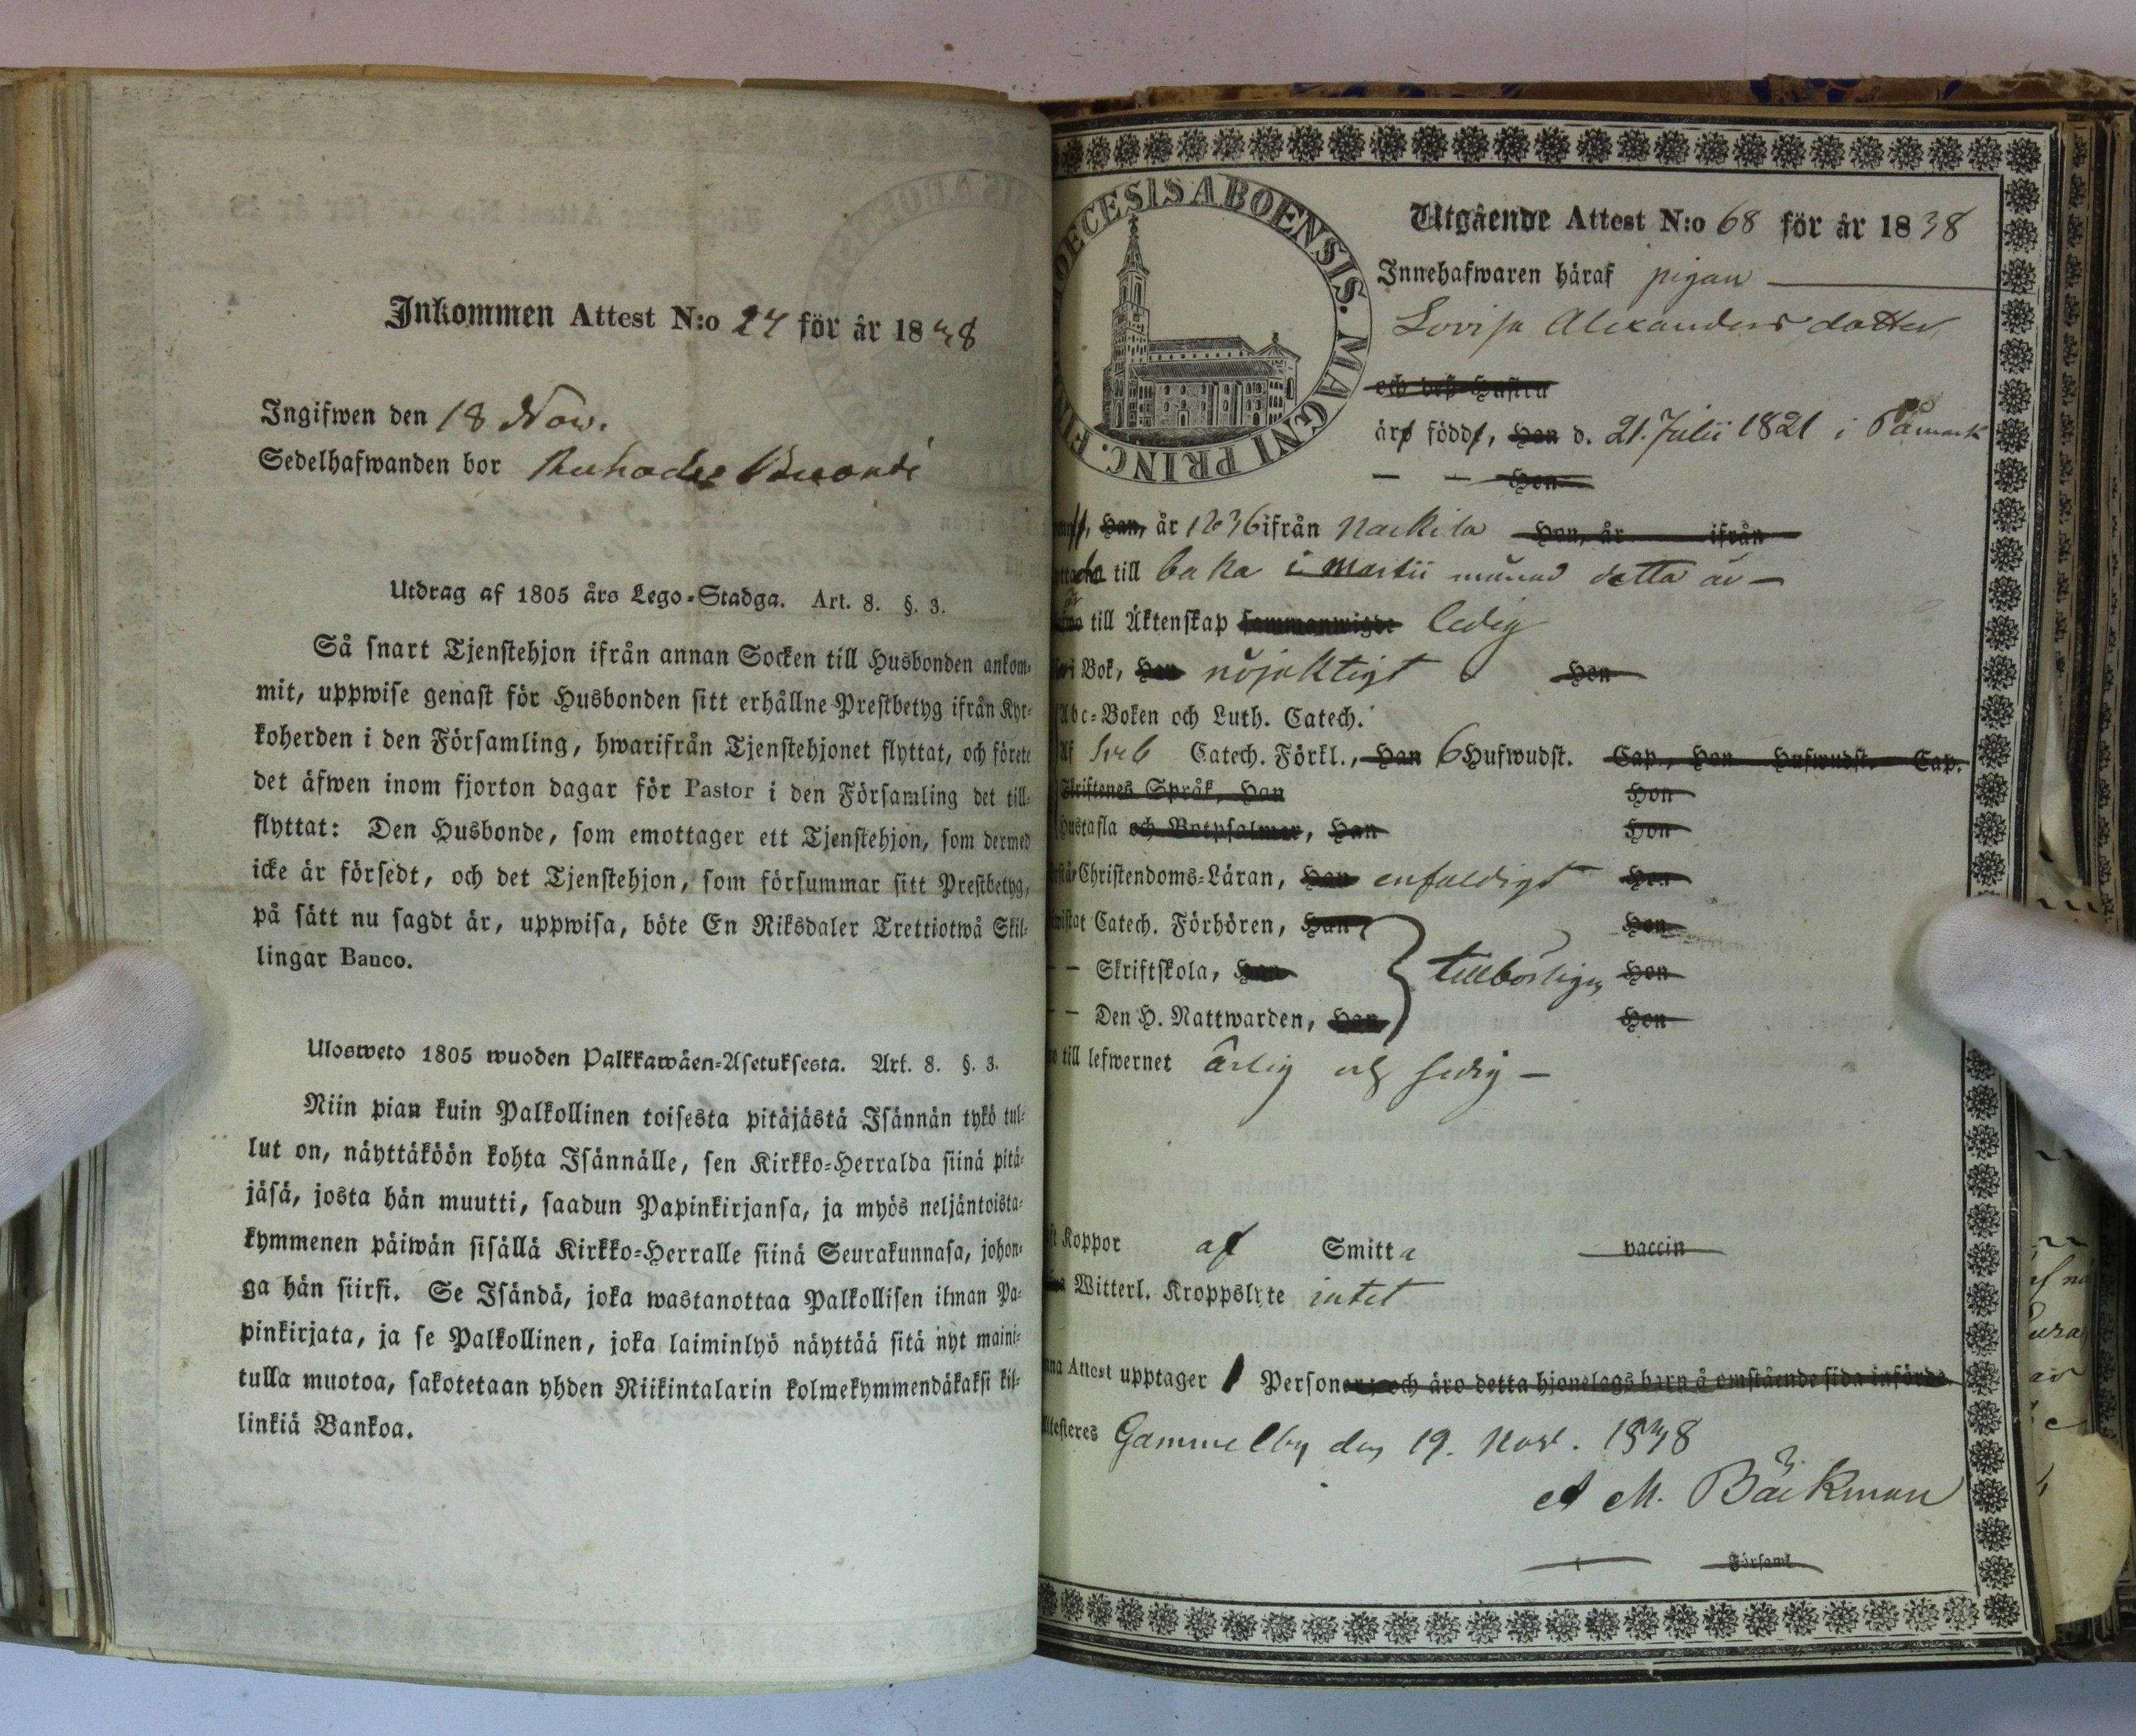 Inkommen Attest N:o 27 för år 1838
Ingifwen den 18 Nov.
Sedelhafwanden bor
Utdrag af 1805 års Lego-Stadga. Art. 8. §. 3.
Så snart Tjenstehjon ifrån annan Socken till Husbonden ankom-
mit, uppwise genast för Husbonden sitt erhållne Prestbetyg ifrån Kyr-
koherden i den Församling, hwarifrån Tjenstehjonet flyttat, och förete
det äfwen inom fjorton dagar för Pastor i den Församling det till-
flyttat: Den Husbonde, som emottager ett Tjenstehjon, som dermed
icke är försedt, och det Tjenstehjon, som försummar sitt Prestbetyg,
på sätt nu sagdt är, uppwisa, böte En Riksdaler Trettiotwå Skil-
lingar Banco.
Ulosweto 1805 wuoden Palkkawäen-Asetuksesta. Art. 8. §. 3.
Niin pian kuin Palkollinen toisesta pitäjästä Isännän tykö tul-
lut on, näyttäköön kohta Isännälle, sen Kirkko-Herralda siinä pitä-
jäsä, josta hän muutti, saadun Papinkirjansa, ja myös neljäntoista-
kymmenen päiwän sisällä Kirkko-Herralle siinä Seurakunnasa, johon-
ga hän siirsi. Se Isändä, joka wastanottaa Palkollisen ilman Pa-
pinkirjata, ja se Palkollinen, joka laiminlyö näyttää sitä nyt maini-
tulla muotoa, sakotetaan yhden Riikintalarin kolmekymmendäkaksi kil-
linkiä Bankoa.
DIOECESIS ABOENSIS. MAGNI PRINC. FINL.
Utgående Attest N:o 68 för år 1838
Innehafwaren häraf pigan
Lovisa Alexanders dotter
och deß Hustru
är född, Han d. 21. Julii 1821 i Påmark
Hon
Han, år 1836 ifrån Nackila Hon, år ifrån
till baka i Martii månad detta år
till Äktenskap sammanwigde ledig
i Bok, Han nöjaktigt Hon
Abc-Boken och Luth. Catech.
Af Sveb Catech. Förkl., Han 6 Hufwudst. Cap., Hon Hufwudst. Cap.
Skriftenes Språk, Han Hon
Hustafla och Botpsalmer, Han Hon
Christendoms-Läran, Han enfaldigt Hon
Catech. Förhören, Han Hon
Skriftskola, Han tillbörligen Hon
Den H. Nattwarden, Han Hon
till lefwernet ärlig och sedig
Koppor af Smitta vaccin
Witterl. Kroppslyte intet
Attest upptager 1 Personer, och äro detta hjonelags barn å omstående sida införde.
Attesteres Gammelby den 19. Nov. 1838
A M. Bäckman
Församl.